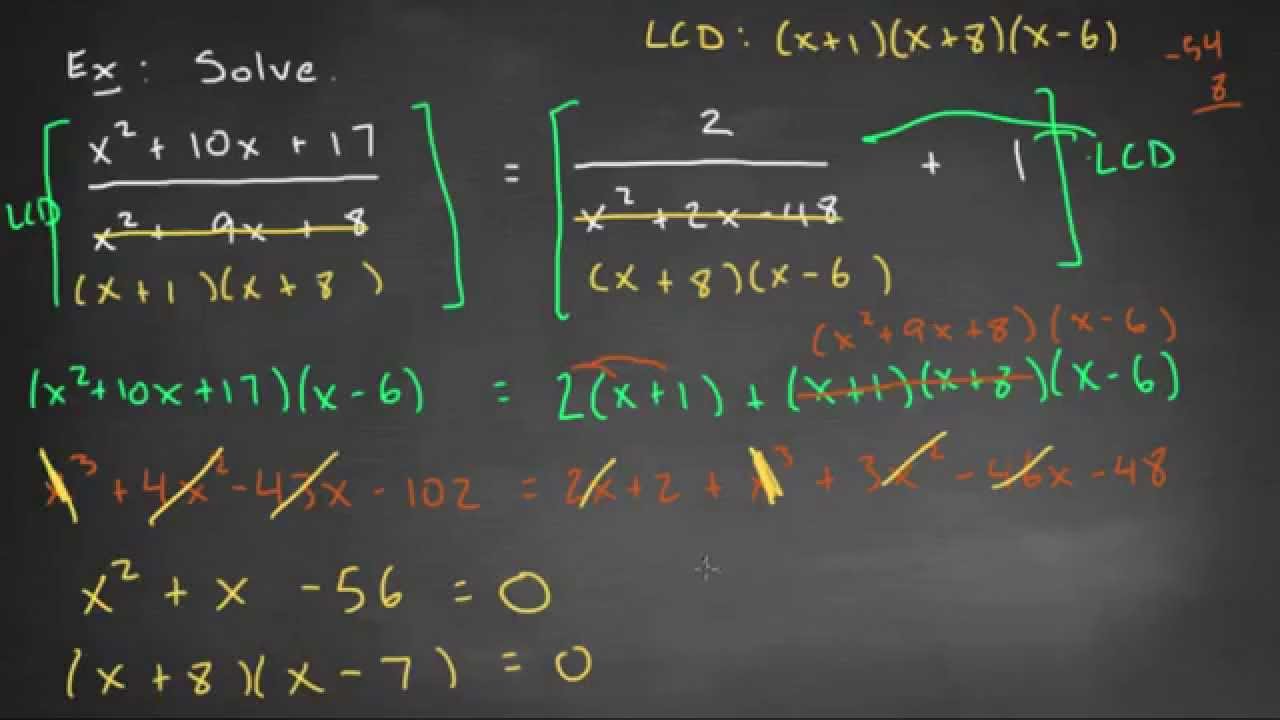 LCD: (x+1)(x+8)(x-6)
-54
8
Ex: Solve.
LCD [ x² + 10x + 17 / x² + 9x + 8 ] = [ 2 / x² + 2x - 48 + 1 ] · LCD
(x+1)(x+8) (x+8)(x-6)
(x²+9x+8)(x-6)
(x²+10x+17)(x-6) = 2(x+1) + (x+1)(x+8)(x-6)
x³ + 4x² - 43x - 102 = 2x + 2 + x³ + 3x² - 46x - 48
x² + x - 56 = 0
(x+8)(x-7) = 0